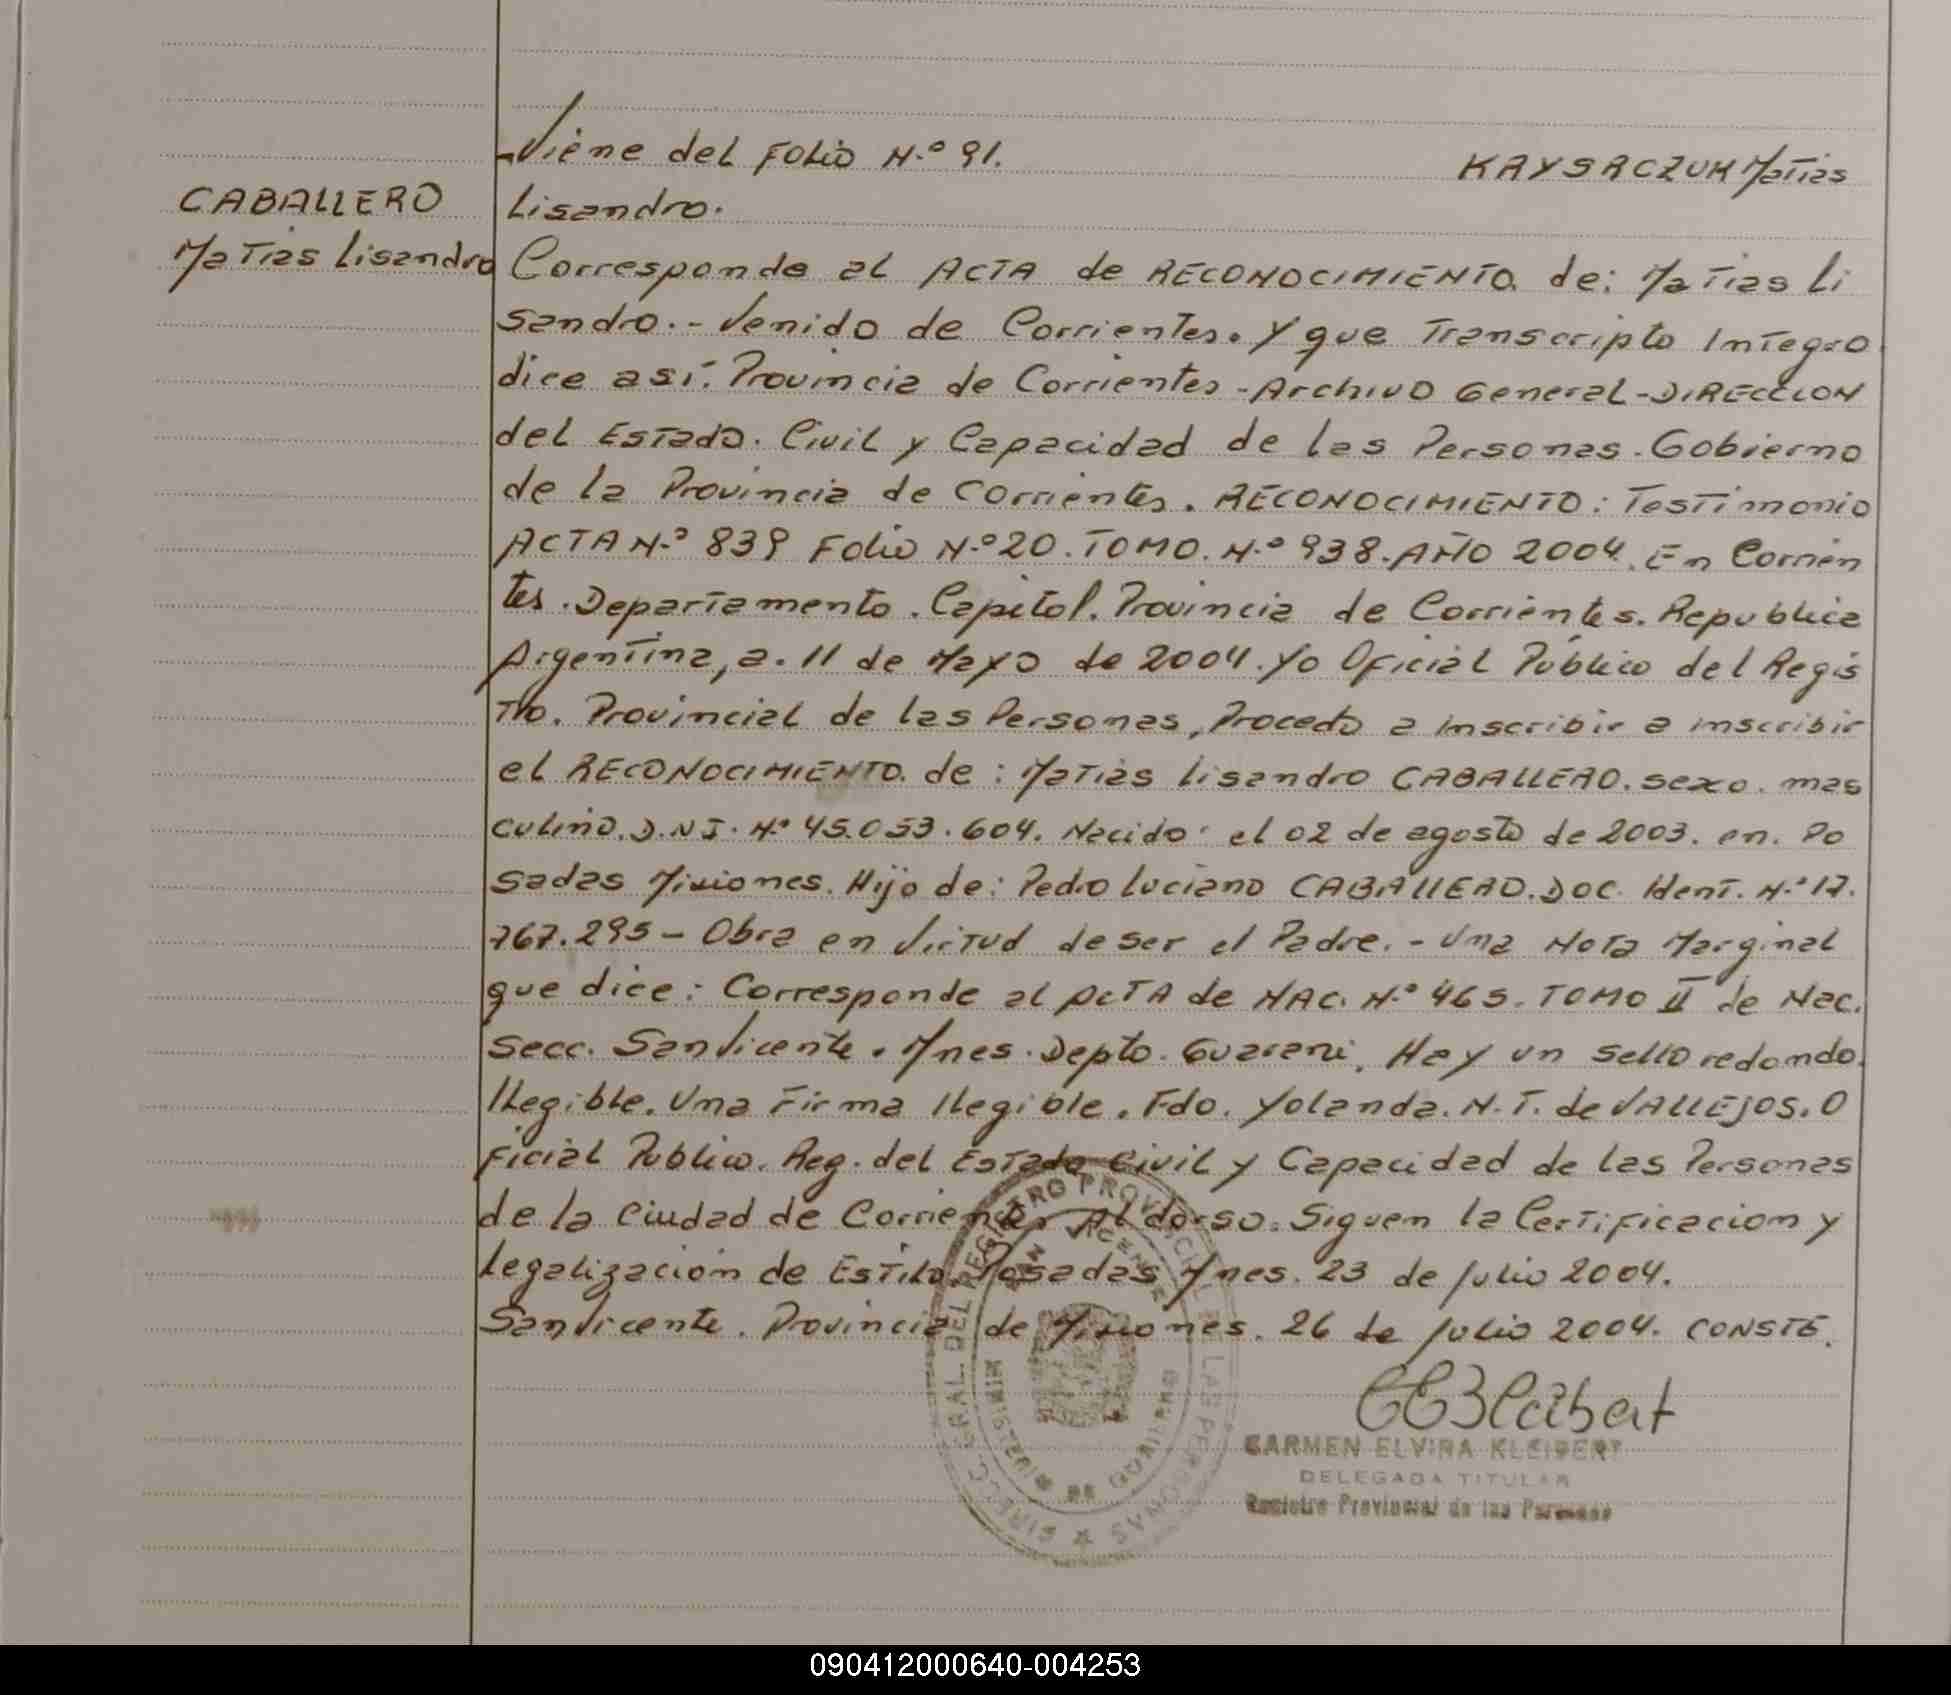 Viene del Folio N.º 91. KAYSACZUK Matias
CABALLERO Lisandro.
Matias Lisandro Corresponde al ACTA de RECONOCIMIENTO. de: Matias Li
sandro. - Venido de Corrientes. Y que Transcripto Integro
dice así: Provincia de Corrientes - Archivo General - DIRECCION
del Estado. Civil y Capacidad de las Personas. Gobierno
de la Provincia de Corrientes. RECONOCIMIENTO: Testimonio
ACTA N.º 839 Folio N.º 20. TOMO. N.º 938. AÑO 2004. En Corrien
tes. Departamento. Capitol. Provincia de Corrientes. Republica
Argentina, a. 11 de Mayo de 2004. Yo Oficial Público del Regis
Tro. Provincial de las Personas, Procedo a inscribir a inscribir
el RECONOCIMIENTO. de: Matias Lisandro CABALLERO. sexo. mas
culino. D.N.I. N.º 45.053.604. Nacido: el 02 de agosto de 2003. en. Po
sadas Misiones. Hijo de: Pedro Luciano CABALLERO. DOC. Ident. N.º 17.
767.295 - Obra en Virtud de ser el Padre. - Una Nota Marginal
que dice: Corresponde al ACTA de NAC. N.º 465. TOMO II de Nac.
Secc. San Vicente. Mnes. Depto. Guarani. Hay un sello redondo.
Ilegible. Una Firma Ilegible. Fdo. Yolanda. N. T. de VALLEJOS. O
ficial Publico. Reg. del Estado Civil y Capacidad de las Personas
de la Ciudad de Corrientes Al dorso. Siguen la Certificacion y
Legalización de Estilo. Posadas Mnes. 23 de Julio 2004.
San Vicente. Provincia de Misiones. 26 de Julio 2004. CONSTE.
DIRECC. GRAL. DEL REGISTRO PROVINCIAL DE LAS PERSONAS
SAN VICENTE
MINISTERIO DE GOBIERNO
CARMEN ELVIRA KLEIBERT
DELEGADA TITULAR
Registro Provincial de las Personas
090412000640-004253